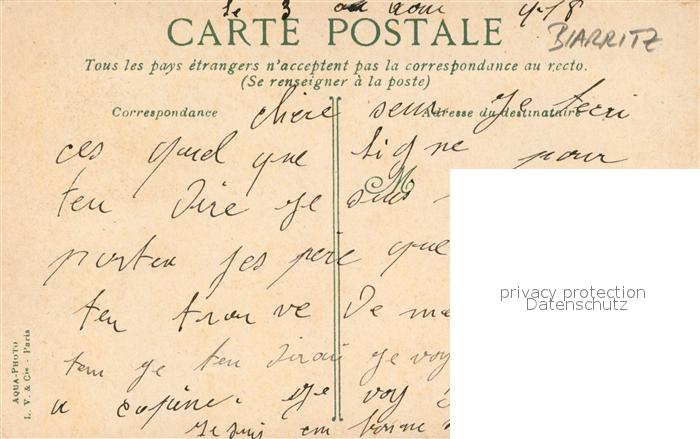 le 3 aou 1918
CARTE POSTALE
BIARRITZ
Tous les pays étrangers n'acceptent pas la correspondance au recto.
(Se renseigner à la poste)
Correspondance
Adresse du destinataire
chere seur je tecri
ces quel que ligne pour
ten dire je suis
porten jes pere que
ten trou ve de me
tem je ten dirai je voy
a copine. je voy
Je suis en bonne
AQUA-PHOTO
L. V. & Cie - Paris
privacy protection
Datenschutz